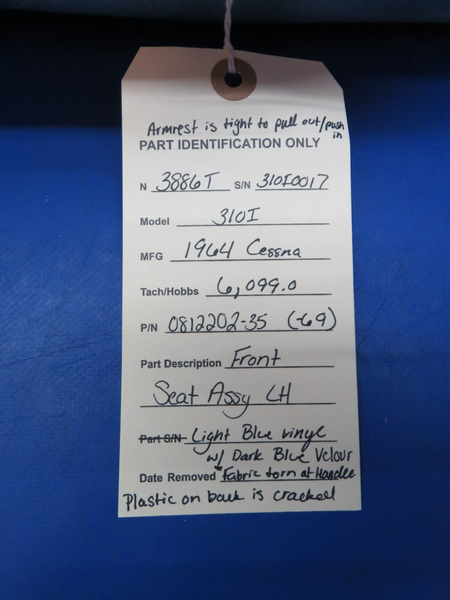 Armrest is tight to pull out/push in
PART IDENTIFICATION ONLY
N 3886T S/N 310I0017
Model 310I
MFG 1964 Cessna
Tach/Hobbs 6,099.0
P/N 0812202-35 (-69)
Part Description Front
Seat Assy LH
Part S/N Light Blue vinyl
w/ Dark Blue Velour
Date Removed *Fabric torn at Handle
Plastic on back is cracked